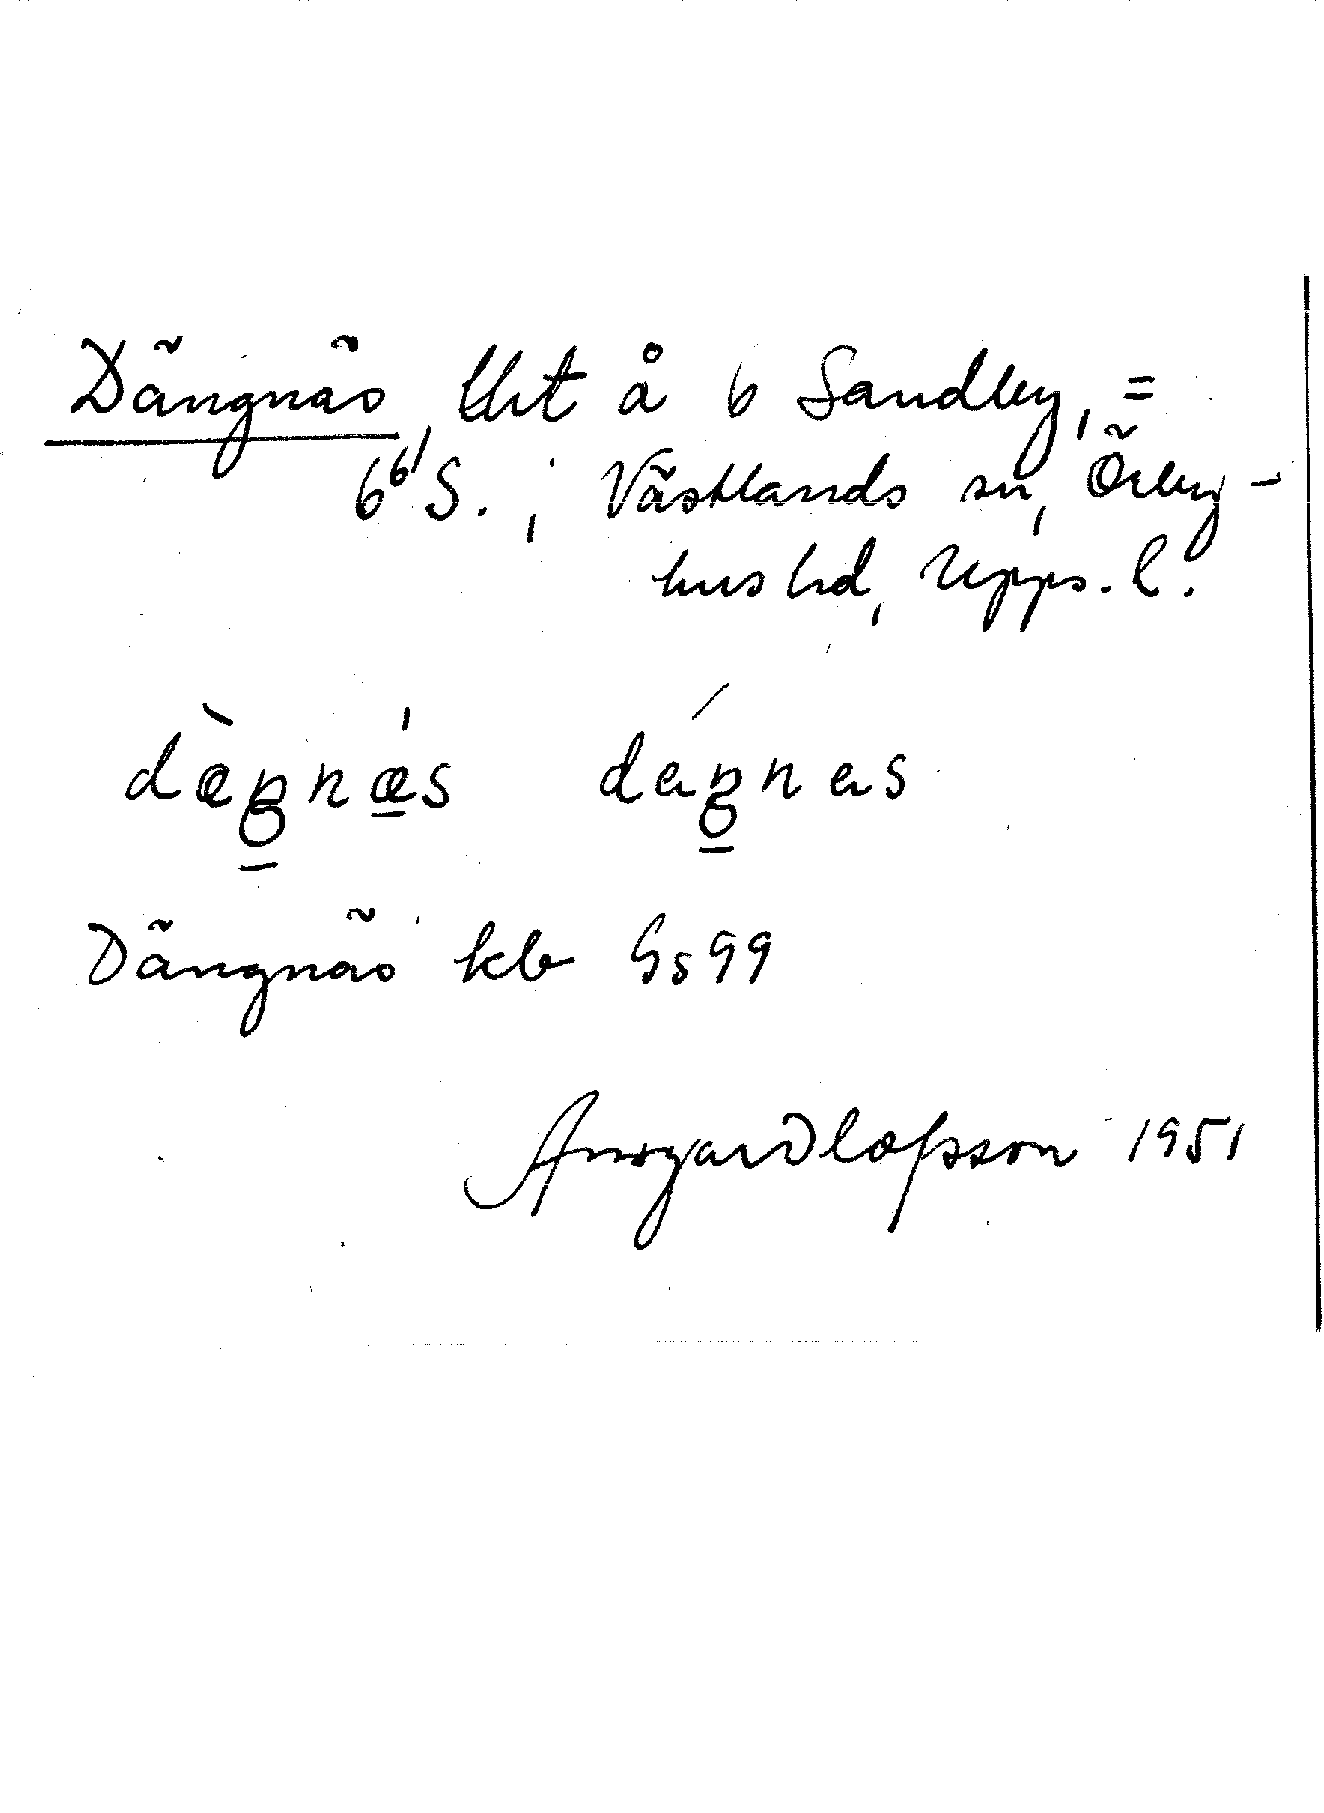 Dängnäs, lht å 6 Sandby, =
6⁶¹ S., Västlands sn, Örby-
hus hd, Upps. l.
dæ̀ŋnæ̀s dáŋnas
Dängnäs kb Gs99
Ansgar Olofsson 1951